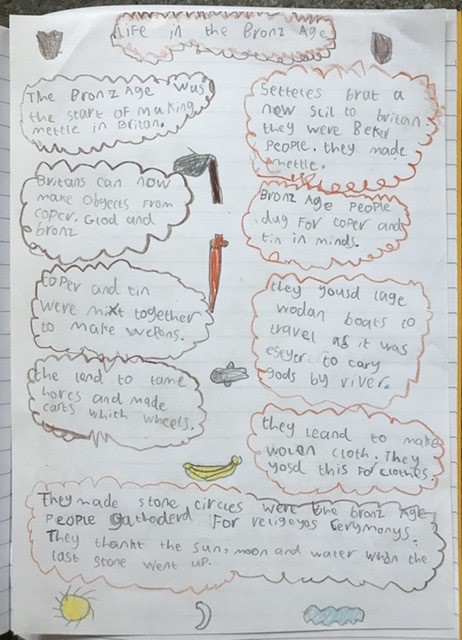 Life in the Bronz Age
The Bronz Age was
the start of making
mettle in Britan.
Setteles brat a
new scil to britan
they were Beker
People. they made
mettle.
Britans can now
make objects from
coper. Glod and
bronz
Bronz Age People
dug for coper and
tin in minds.
coper and tin
were mixt together
to make wepons.
they yousd lage
wodan boats to
travel as it was
eseyer to cary
gods by river.
the lend to tame
hores and made
carts which wheels.
they leand to make
wolen cloth. They
yosd this for clothes.
They made stone circles were the bronz Age
People gathoderd for religeyos serymonys.
They thankt the sun, moon and water when the
last stone went up.